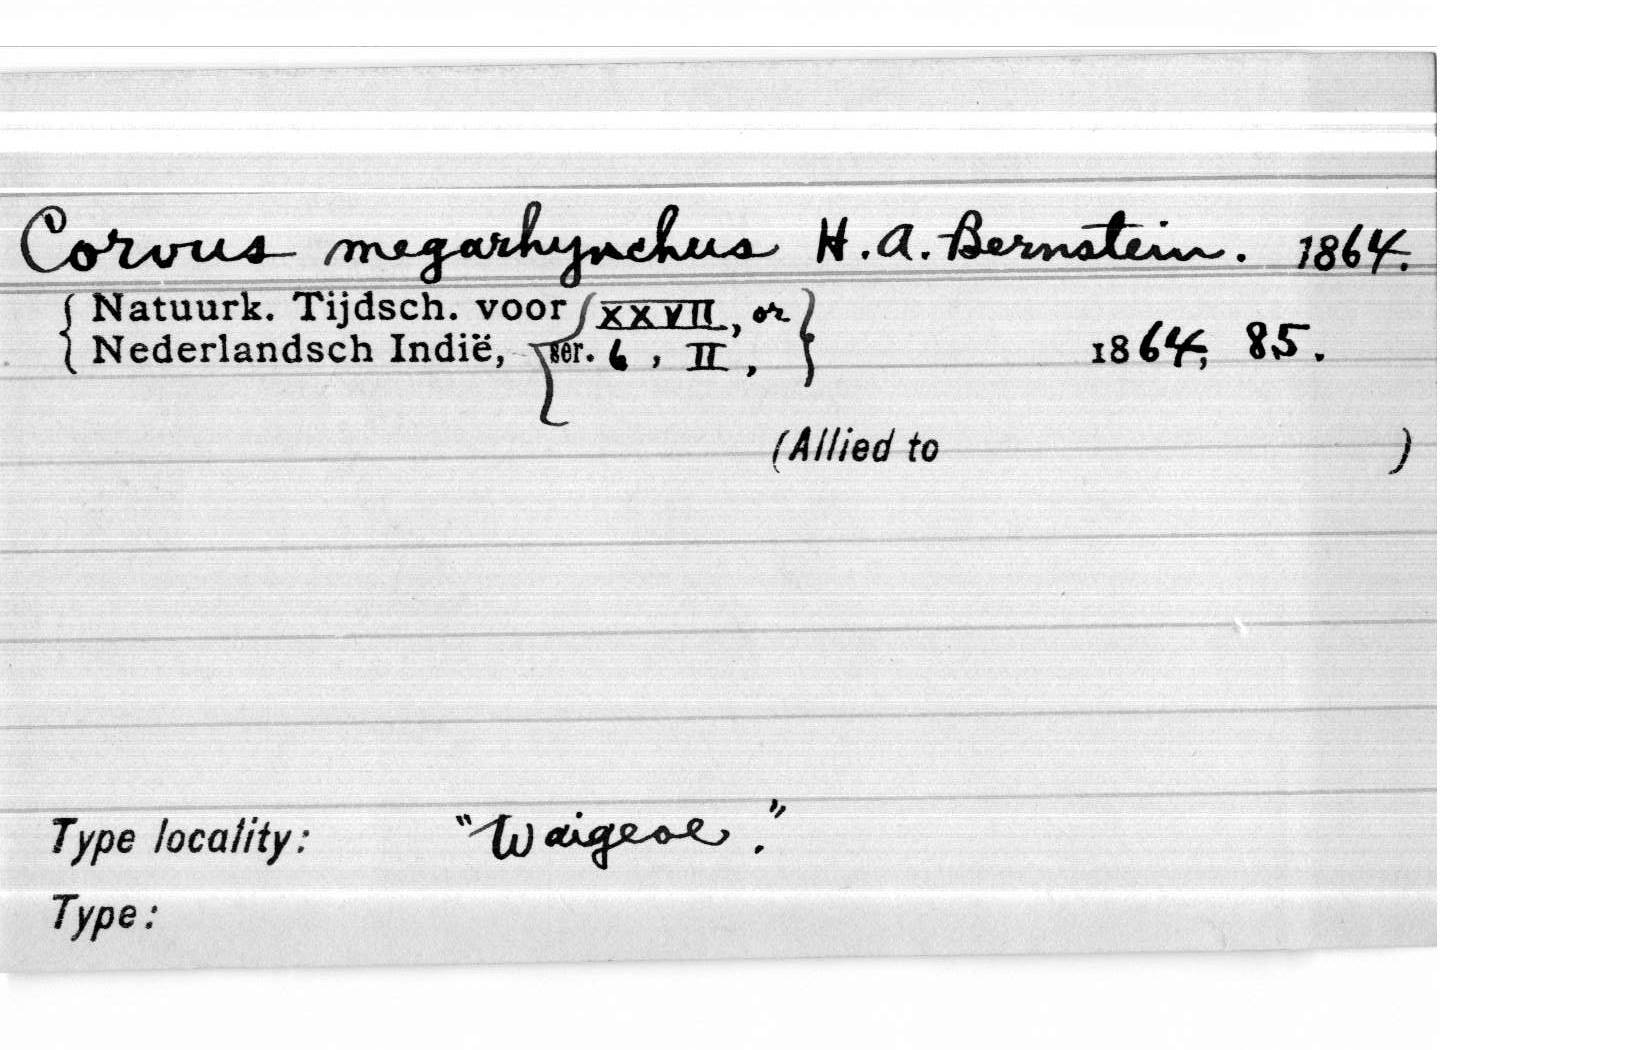 Corvus megarhynchus H.A. Bernstein. 1864.
{ Natuurk. Tijdsch. voor { XXVII, or }
{ Nederlandsch Indië, ser. 6, II, } 1864, 85.
(Allied to )
Type locality: "Waigeoe."
Type: